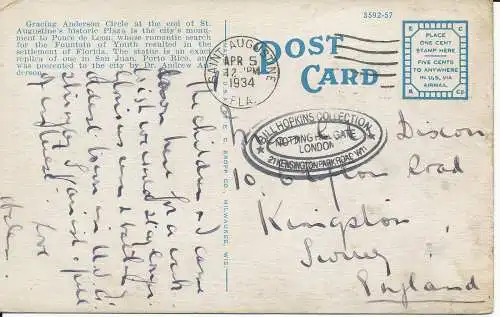 Gracing Anderson Circle at the east end of St.
Augustine's historic Plaza is the city's monu-
ment to Ponce de Leon, whose romantic search
for the Fountain of Youth resulted in the
settlement of Florida. The statue is an exact
replica of one in San Juan, Porto Rico, and
was presented to the city by Dr. Andrew An-
derson.
The children & I came
down here for a week
just wound
glorious sun & hot
oldest town in U.S.A.
Spanish & full
of interest.
Love
Helen
E. C. KROPP CO., MILWAUKEE, WIS.
3592-57
POST
CARD
SAINT AUGUSTINE
APR 5
12 PM
1934
FLA.
PLACE
ONE CENT
STAMP HERE
FIVE CENTS
TO ANYWHERE
IN U.S. VIA
AIRMAIL
BILL HOPKINS COLLECTION
NOTTING HILL GATE
LONDON
21 KENSINGTON PARK ROAD W11
Dixon
10, Road
Kingston
Surrey
England